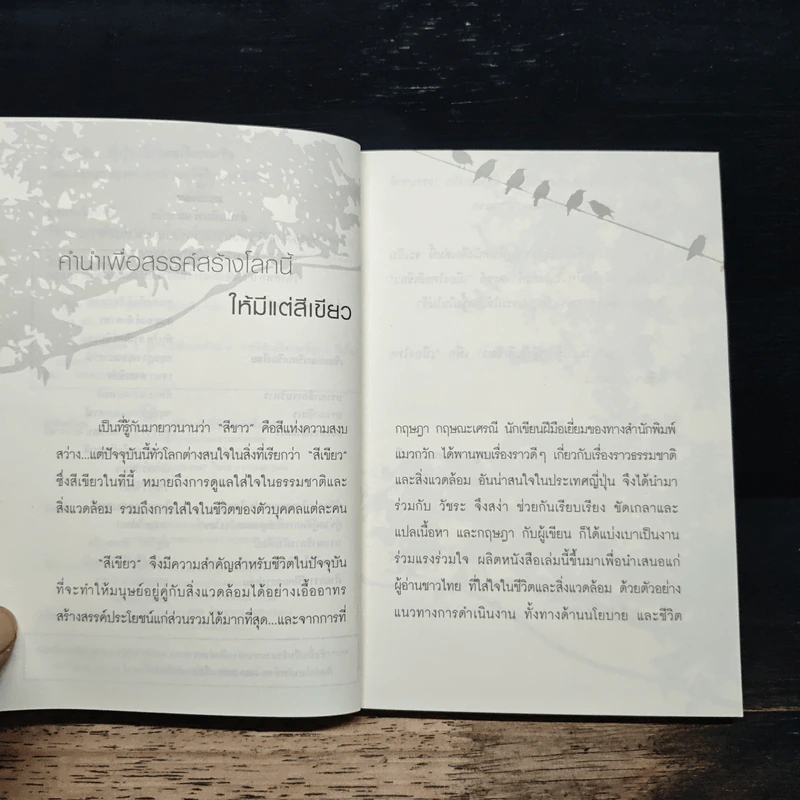 คำนำเพื่อสรรค์สร้างโลกนี้
ให้มีแต่สีเขียว
เป็นที่รู้กันมายาวนานว่า “สีขาว” คือสีแห่งความสงบ
สว่าง...แต่ปัจจุบันนี้ทั่วโลกต่างสนใจในสิ่งที่เรียกว่า “สีเขียว”
ซึ่งสีเขียวในที่นี้ หมายถึงการดูแลใส่ใจในธรรมชาติและ
สิ่งแวดล้อม รวมถึงการใส่ใจในชีวิตของตัวบุคคลแต่ละคน
“สีเขียว” จึงมีความสำคัญสำหรับชีวิตในปัจจุบัน
ที่จะทำให้มนุษย์อยู่คู่กับสิ่งแวดล้อมได้อย่างเอื้ออาทร
สร้างสรรค์ประโยชน์แก่ส่วนรวมได้มากที่สุด...และจากการที่
กฤษฎา กฤษณะเศรณี นักเขียนฝีมือเยี่ยมของทางสำนักพิมพ์
แมวกวัก ได้พานพบเรื่องราวดีๆ เกี่ยวกับเรื่องราวธรรมชาติ
และสิ่งแวดล้อม อันน่าสนใจในประเทศญี่ปุ่น จึงได้นำมา
ร่วมกับ วัชระ จึงสง่า ช่วยกันเรียบเรียง ขัดเกลาและ
แปลเนื้อหา และกฤษฎา กับผู้เขียน ก็ได้แบ่งเบาเป็นงาน
ร่วมแรงร่วมใจ ผลิตหนังสือเล่มนี้ขึ้นมาเพื่อนำเสนอแก่
ผู้อ่านชาวไทย ที่ใส่ใจในชีวิตและสิ่งแวดล้อม ด้วยตัวอย่าง
แนวทางการดำเนินงาน ทั้งทางด้านนโยบาย และชีวิต